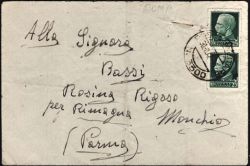 Alla Signora
Bassi
Rosina Rigoso
per Rimagna Monchio
(Parma)